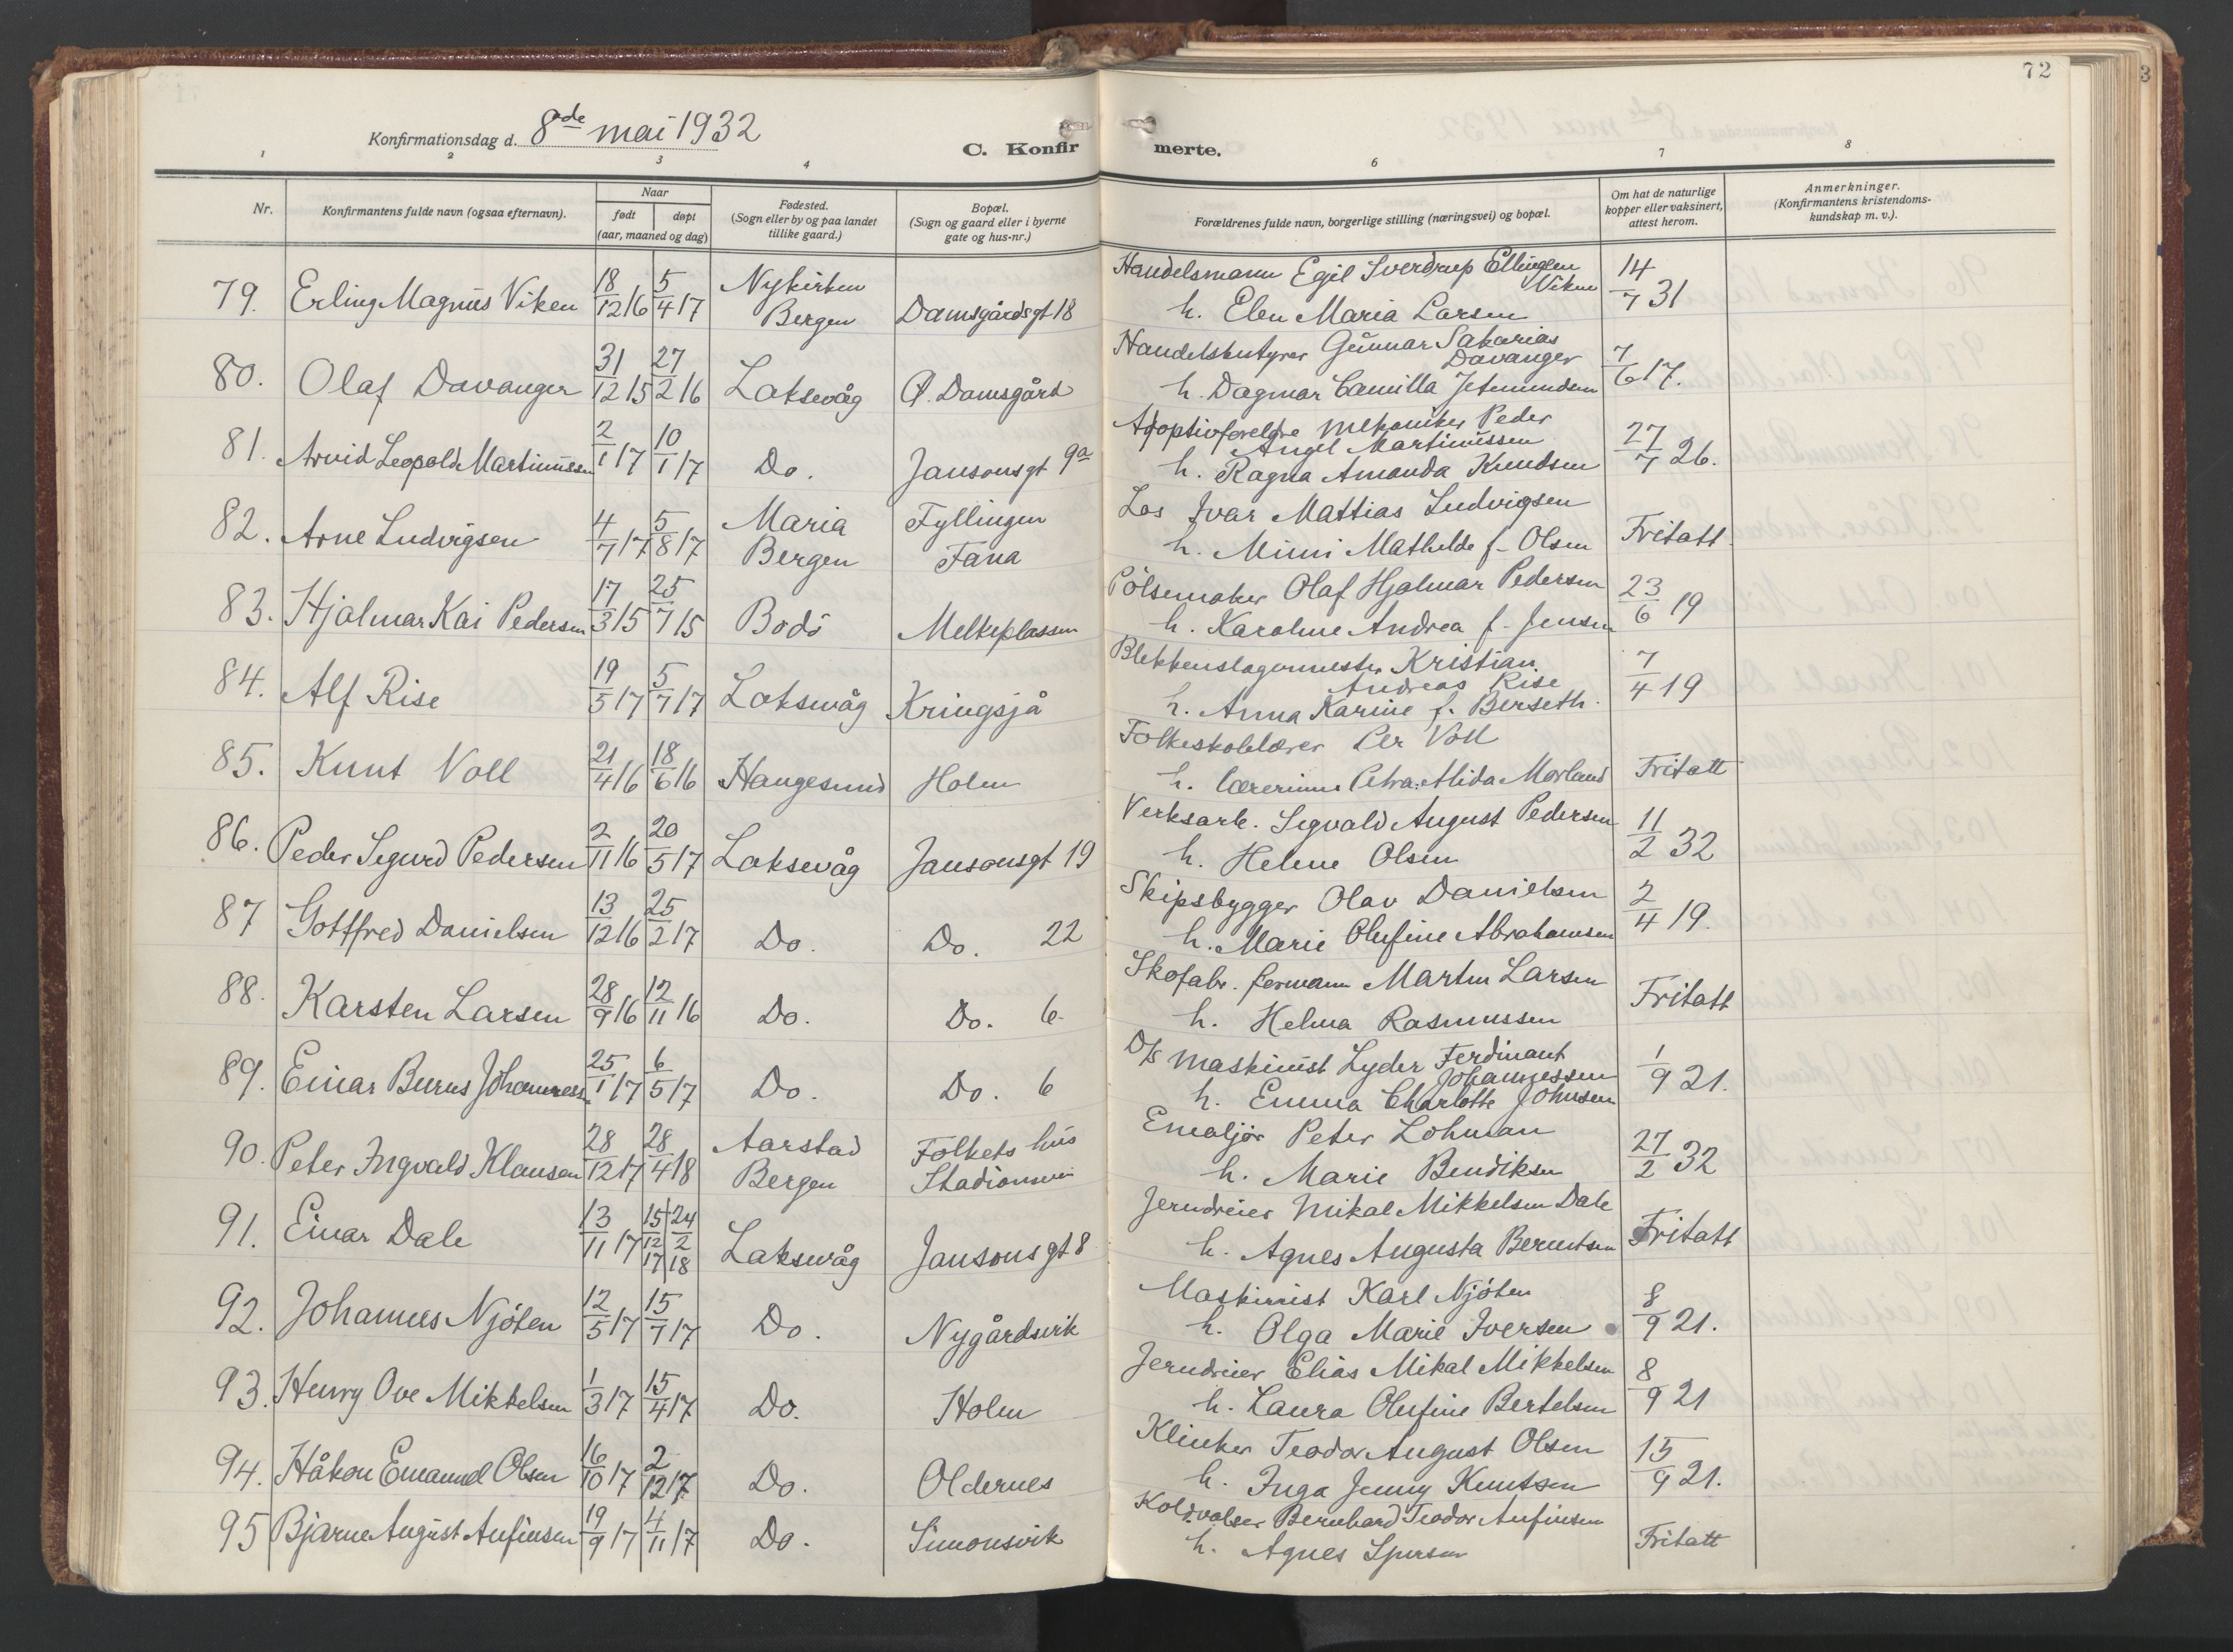 72
3
Konfirmationsdag d. 8de mai 1932
C. Konfir merte.
1 2 3 4 6 7 8
Nr.
Konfirmantens fulde navn (ogsaa efternavn).
Naar
født døpt
(aar, maaned og dag)
Fødested.
(Sogn eller by og paa landet
tillike gaard.)
Bopæl.
(Sogn og gaard eller i byerne
gate og hus-nr.)
Forældrenes fulde navn, borgerlige stilling (næringsvei) og bopæl.
Om hat de naturlige
kopper eller vaksinert,
attest herom.
Anmerkninger.
(Konfirmantens kristendoms-
kundskap m. v.).
79. Erling Magnus Viken 18/12 16 5/4 17 Nykirken Bergen Damsgårdsgt 18
Handelsmann Egil Sverdrup Ellingsen Viken
h. Elen Maria Larsen 14/7 31
80. Olaf Davanger 31/12 15 27/2 16 Laksevåg Ø. Damsgård
Handelsbestyrer Gunnar Sakarias Davanger
h. Dagmar Camilla Jetmundsen 7/6 17.
81. Arvid Leopold Martinussen 2/1 17 10/1 17 Do. Jansonsgt 9a
Adoptivforeldre Mekaniker Peder
Angel Martinussen
h. Ragna Amanda Knudsen 27/7 26.
82. Arne Ludvigsen 4/7 17 5/8 17 Maria Bergen Fyllingen Fana
Los Ivar Mattias Ludvigsen
h. Mimi Mathilde f. Olsen Fritatt.
83. Hjalmar Kai Pedersen 17/3 15 25/7 15 Bodö Melkeplassen
Pölsemaker Olaf Hjalmar Pedersen
h. Karoline Andrea f. Jensen 23/6 19
84. Alf Rise 19/5 17 5/7 17 Laksevåg Kringsjå
Blekkenslagermester Kristian
Andreas Rise
h. Anna Karine f. Berseth. 7/4 19
85. Knut Voll 21/4 16 18/6 16 Haugesund Holen
Folkeskolelærer Per Voll
h. lærerinne Petra Alida Morland Fritatt
86. Peder Sigurd Pedersen 2/11 16 20/5 17 Laksevåg Jansonsgt 19
Verksarb. Sigvald August Pedersen
h. Helene Olsen 11/2 32
87 Gottfred Danielsen 13/12 16 25/2 17 Do. Do. 22
Skipsbygger Olav Danielsen
h. Marie Olufine Abrahamsen 2/4 19.
88. Karsten Larsen 28/9 16 12/11 16 Do. Do. 6
Skofabr. formann Martin Larsen
h. Helma Rasmussen Fritatt
89. Einar Burns Johannessen 25/1 17 6/5 17 Do. Do. 6
D/s maskinist Lyder Ferdinant
Johannessen
h. Emma Charlotte Johnsen 1/9 21.
90. Peter Ingvald Klausen 28/12 17 28/4 18 Aarstad Bergen Folkets hus Stadionveien
Emaljör Peter Lohman
h. Marie Bendiksen 27/2 32
91. Einar Dale 13/11 17 15/12 17 24/2 18 Laksevåg Jansonsgt 8
Jerndreier Mikal Mikkelsen Dale
h. Agnes Augusta Berntsen Fritatt
92. Johannes Njöten 12/5 17 15/7 17 Do. Nygårdsvik
Maskinist Karl Njöten
h. Olga Marie Iversen 8/9 21.
93. Henry Ove Mikkelsen 1/3 17 15/4 17 Do. Holen
Jerndreier Elias Mikal Mikkelsen
h. Laura Olufine Bertelsen 8/9 21
94. Håkon Emanuel Olsen 16/10 17 2/12 17. Do. Oldernes
Klinker Teodor August Olsen
h. Inga Jenny Knutsen 15/9 21.
95 Bjarne August Anfinsen 19/9 17 4/11 17 Do. Simonsvik
Koldvalser Bernhard Teodor Anfinsen
h. Agnes Fritatt